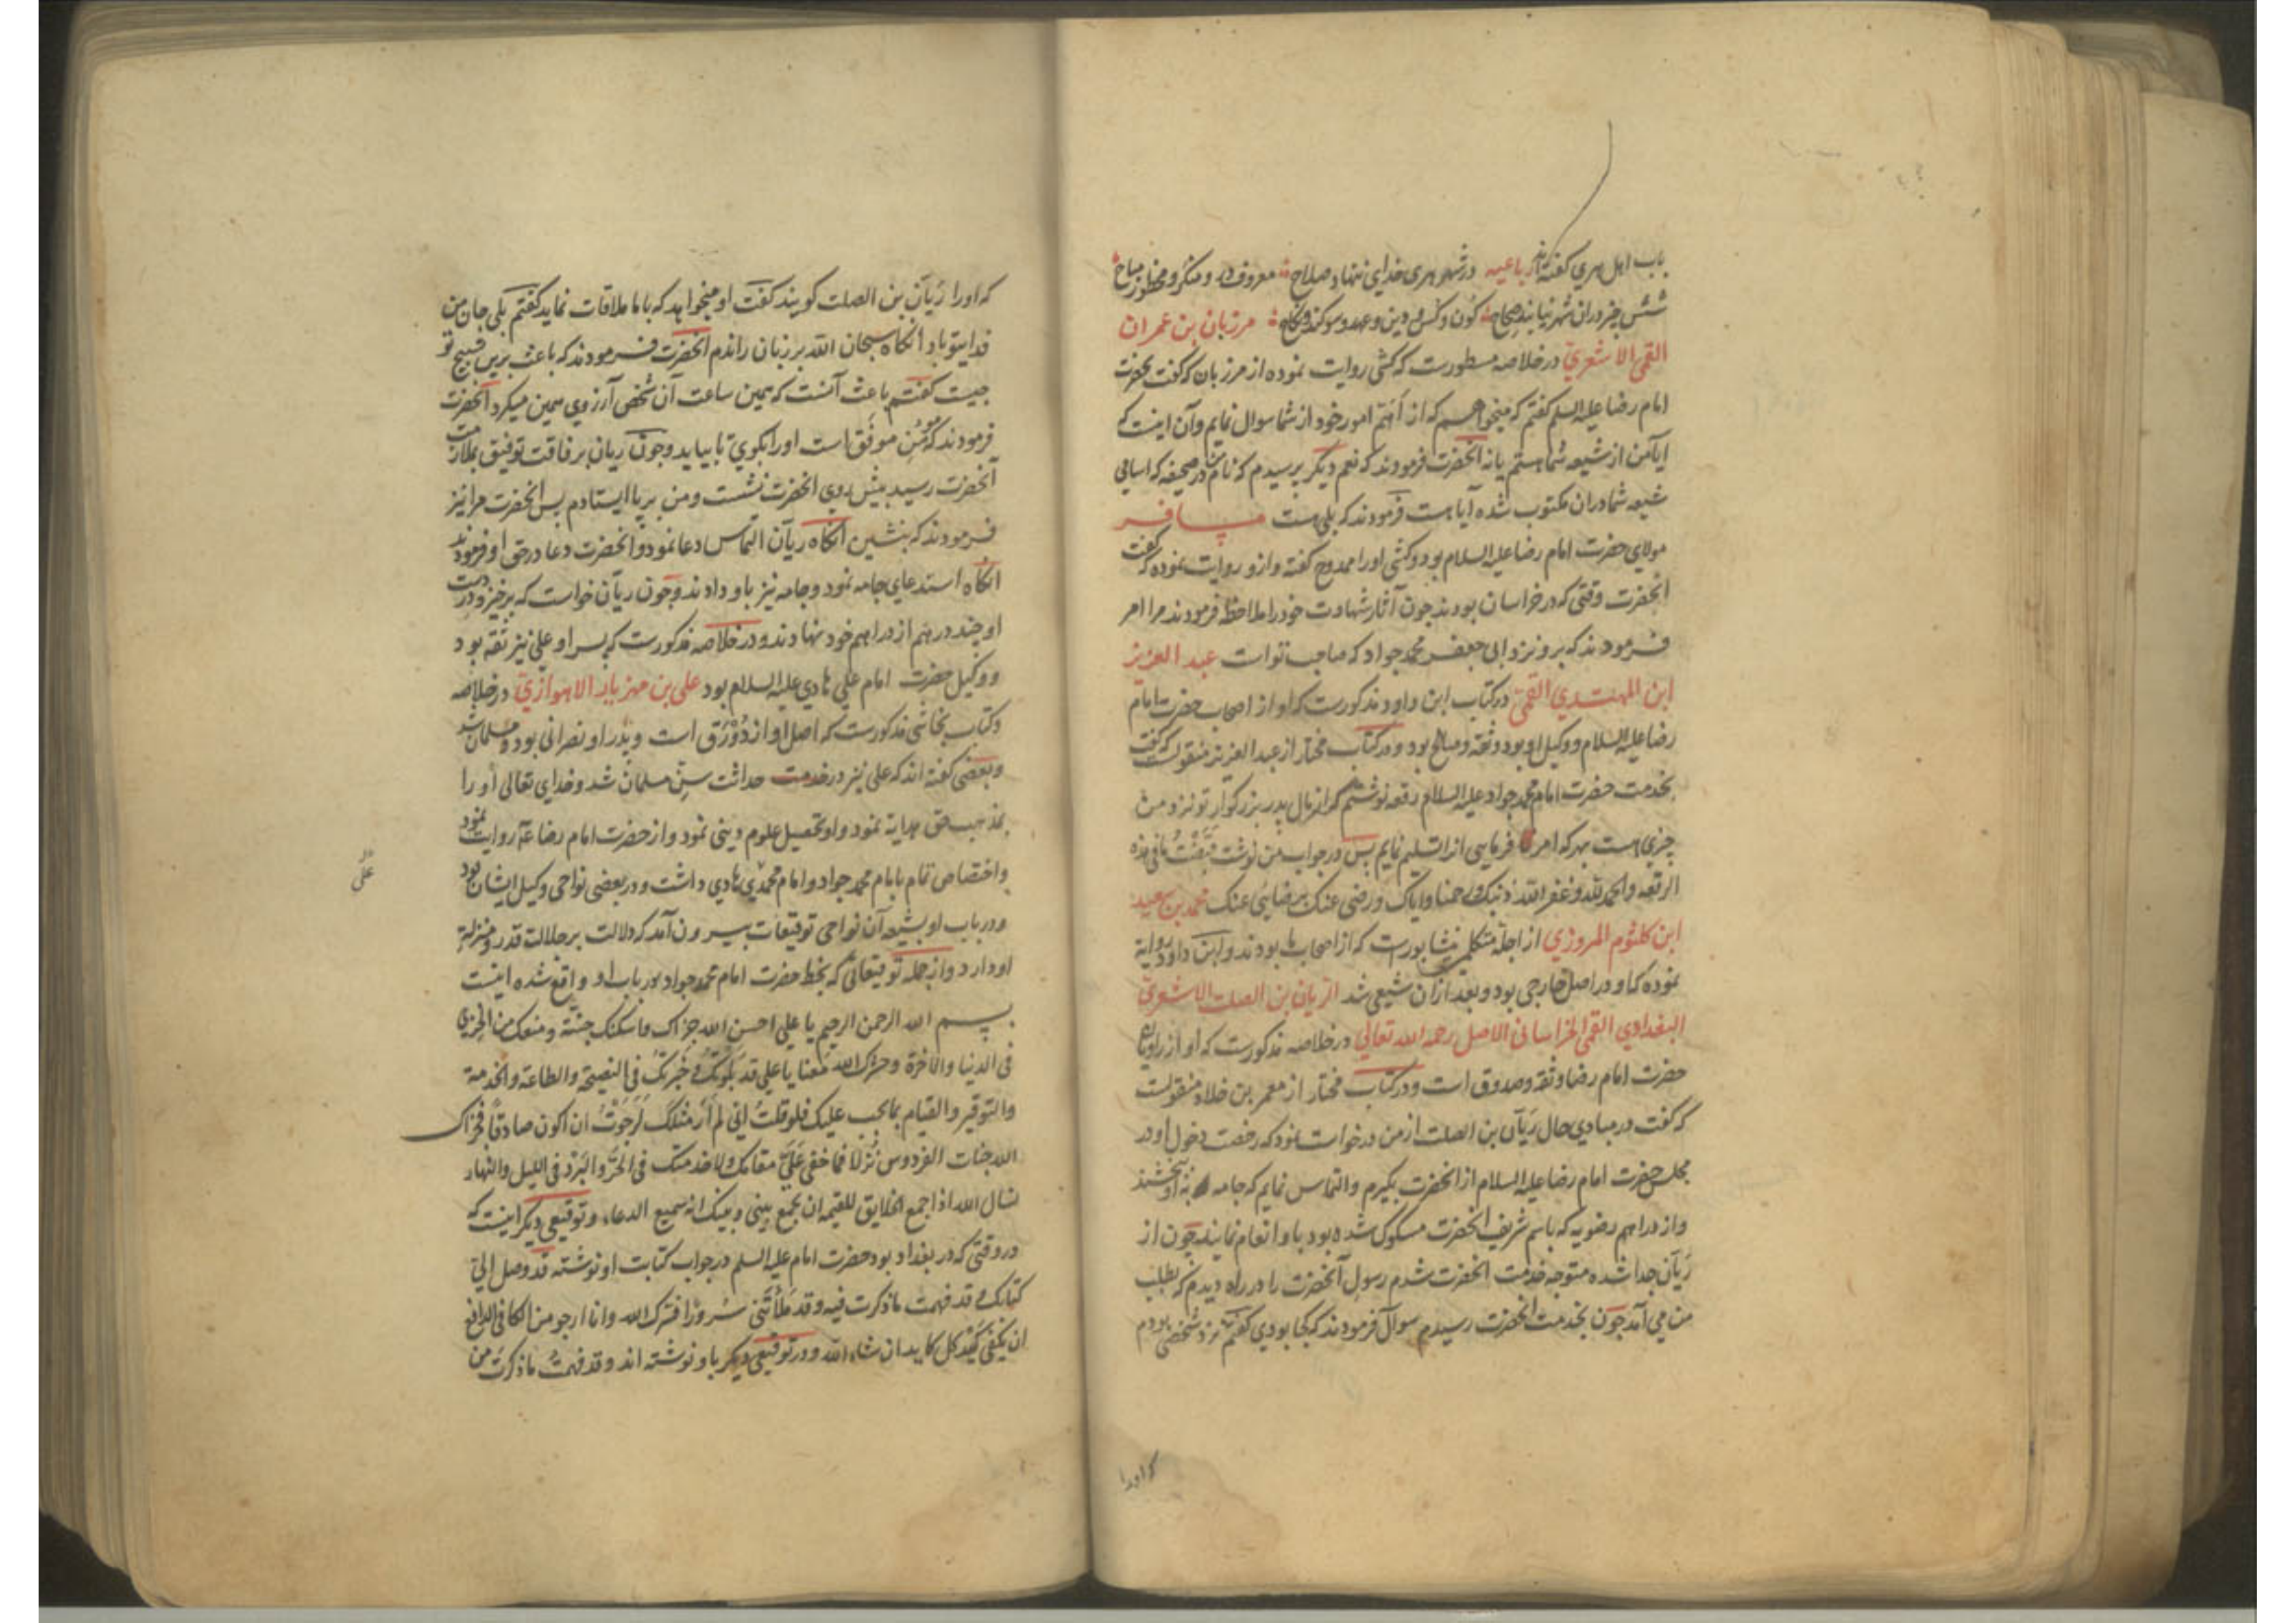 باب اهل هری گفته‌اند رباعیه در شهر هری خدای ننهاد صلاح معروف در و منکر و محظور مباح
شش چیز در ان شهر نیابند صحاح کون و کس و دین و عهد و سوکند و نکاح مرزبان بن عمران
القمی الاشعری در خلاصه مسطورست که کشی روایت نموده از مرزبان که گفت بحضرت
امام رضا علیه السلم گفتم که میخواهم که از اهم امور خود از شما سوال نمایم و آن اینست که
ایا من از شیعه شما هستم یا نه آنحضرت فرمودند که نعم دیگر پرسیدم که نام من در صحیفه که اسامی
شیعه شما در ان مکتوب شده آیا هست فرمودند که بلی هست مسافر
مولای حضرت امام رضا علیه السلام بود و کشی اورا ممدوح گفته و ازو روایت نموده که گفت
انحضرت وقتی که در خراسان بودند چون آثار شهادت خود را ملاحظه فرمودند مرا امر
فرمودند که برو نزد ابی جعفر محمد جواد که صاحب تو است عبد العزیز
ابن المهتدی القمی در کتاب ابن داود مذکورست که او از اصحاب حضرت امام
رضا علیه السلام و وکیل او بود و ثقه و صالح بود و در کتاب مختار از عبد العزیز منقولست که گفت
بخدمت حضرت امام محمد جواد علیه السلام رقعه نوشتم که از مال پدر بزرکوار تو نزد من
چیزی هست بهر که امر فرمایی از ا تسلیم نمایم پس در جواب من نوشت قبضت ما فی هذه
الرقعه والحمد لله و غفر الله ذنبک و رحمنا و ایاک و رضی عنک برضایی عنک محمد بن سعید
ابن کلثوم المروزی از اجله متکلمین نیشابورست که از اصحاب ما بودند و ابن داود روایة
نموده که او در اصل خارجی بود و بعد از ان شیعی شد الریان بن الصلت الاشعری
البغدادی القمی الخراسانی الاصل رحمه الله تعالی در خلاصه مذکورست که او از راویان
حضرت امام رضا و ثقه و صدوق است و در کتاب مختار از معمر بن خلاد منقولست
که گفت در مبادی حال ریان بن الصلت از من درخواست نمود که رخصت دخول او در
مجلس حضرت امام رضا علیه السلام از انحضرت بکیرم و التماس نمایم که جامه به او بخشند
و از دراهم رضویه که باسم شریف انحضرت مسکوک شده بود باو انعام نمایند چون از
ریان جدا شده متوجه خدمت انحضرت شدم رسول آنحضرت را در راه دیدم که بطلب
من می آمد چون بخدمت انحضرت رسیدم سوال فرمودند که کجا بودی گفتم نزد شخصی بودم
که اورا
که اورا ریان بن الصلت کویند گفت او میخواهد که با ما ملاقات نماید گفتم بلی جان من
فدایتو باد انکاه سبحان الله بر زبان راندم انحضرت فرمودند که باعث برین تسبیح تو
چیست گفتم باعث آنست که همین ساعت آن شخص آرزوی همین میکرد انحضرت
فرمودند که مؤمن موفق است اورا بکوی تا بیاید و چون ریان برفاقت توفیق بملازمت
آنحضرت رسید پیش روی انحضرت نشست و من بر پا ایستادم پس انحضرت مرا نیز
فرمودند که بنشین انکاه ریان التماس دعا نمود و انحضرت دعا در حق او فرمودند
انکاه استدعای جامه نمود و جامه نیز باو دادند و چون ریان خواست که برخیزد در دست
او چند درهم از دراهم خود نهادند و در خلاصه مذکورست که پسر او علی نیز ثقه بود
و وکیل حضرت امام علی هادی علیه السلام بود علی بن مهزیار الاهوازی در خلاصه
و کتاب نجاشی مذکورست که اصل او از دورق است و پدر او نصرانی بود و مسلمان شد
و بعضی گفته اند که علی نیز در خدمت حداثت سن مسلمان شد و خدای تعالی او را
بمذهب حق هدایة نمود و او تحصیل علوم دینی نمود و از حضرت امام رضا ع روایت نمود
و اختصاص تمام بامام محمد جواد و امام محمد هادی داشت و در بعضی نواحی وکیل ایشان بود
علی
و در باب او بشیعه آن نواحی توقیعات بیرون آمد که دلالت بر جلالت قدر و منزلة
او دارد و از جمله توقیعاتی که بخط حضرت امام محمد جواد در باب او واقع شده اینست
بسم الله الرحمن الرحیم یا علی احسن الله جزاک و اسکنک جنته و منعک من الخزی
فی الدنیا والاخرة و حشرک الله معنا یا علی قد بلوتک و خبرتک فی النصیحة والطاعة والخدمة
والتوقیر والقیام بما یجب علیک فلو قلت انی لم ار مثلک لرجوت ان اکون صادقا فجزاک
الله جنات الفردوس نزلا فما خفی علی مقامک ولا خدمتک فی الحر والبرد فی اللیل والنهار
اسال الله اذا جمع الخلایق للقیمه ان یجمع بینی و بینک انه سمیع الدعاء و توقیعی دیکر اینست که
در وقتی که در بغداد بود حضرت امام علیه السلم در جواب کتابت او نوشته قد وصل الی
کتابک و قد فهمت ما ذکرت فیه و قد ملأتنی سرورا فسرک الله و انا ارجو من الکافی الدافع
ان یکفی کید کل کاید ان شاء الله و در توقیعی دیکر باو نوشته اند و قد فهمت ما ذکرت من